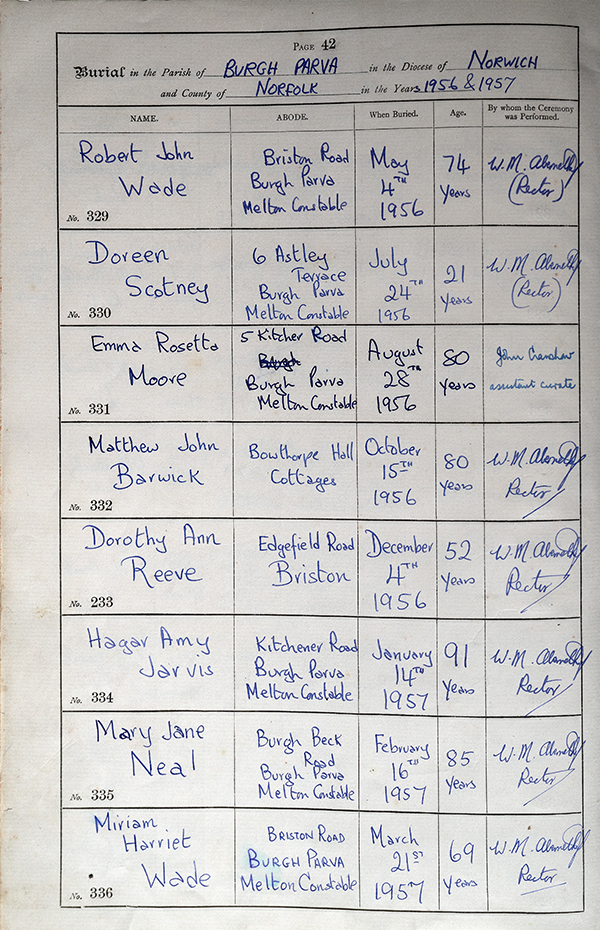 PAGE 42
Burial in the Parish of BURGH PARVA in the Diocese of NORWICH
and County of NORFOLK in the Years 1956 & 1957
NAME. ABODE. When Buried. Age. By whom the Ceremony was Performed.
Robert John Wade
Briston Road
Burgh Parva
Melton Constable
May
4TH
1956
74
Years
W. M. Abernethy
(Rector)
No. 329
Doreen
Scotney
6 Astley
Terrace
Burgh Parva
Melton Constable
July
24TH
1956
21
Years
W. M. Abernethy
(Rector)
No. 330
Emma Rosetta
Moore
5 Kitcher Road
Burgh Parva
Melton Constable
August
28TH
1956
80
Years
John
assistant curate
No. 331
Matthew John
Barwick
Bowthorpe Hall
Cottages
October
15TH
1956
80
Years
W. M. Abernethy
Rector
No. 332
Dorothy Ann
Reeve
Edgefield Road
Briston
December
4TH
1956
52
Years
W. M. Abernethy
Rector
No. 233
Hagar Amy
Jarvis
Kitchener Road
Burgh Parva
Melton Constable
January
14TH
1957
91
Years
W. M. Abernethy
Rector
No. 334
Mary Jane
Neal
Burgh Beck
Road
Burgh Parva
Melton Constable
February
16TH
1957
85
Years
W. M. Abernethy
Rector
No. 335
Miriam
Harriet
Wade
BRISTON ROAD
BURGH PARVA
Melton Constable
March
21ST
1957
69
Years
W. M. Abernethy
Rector
No. 336